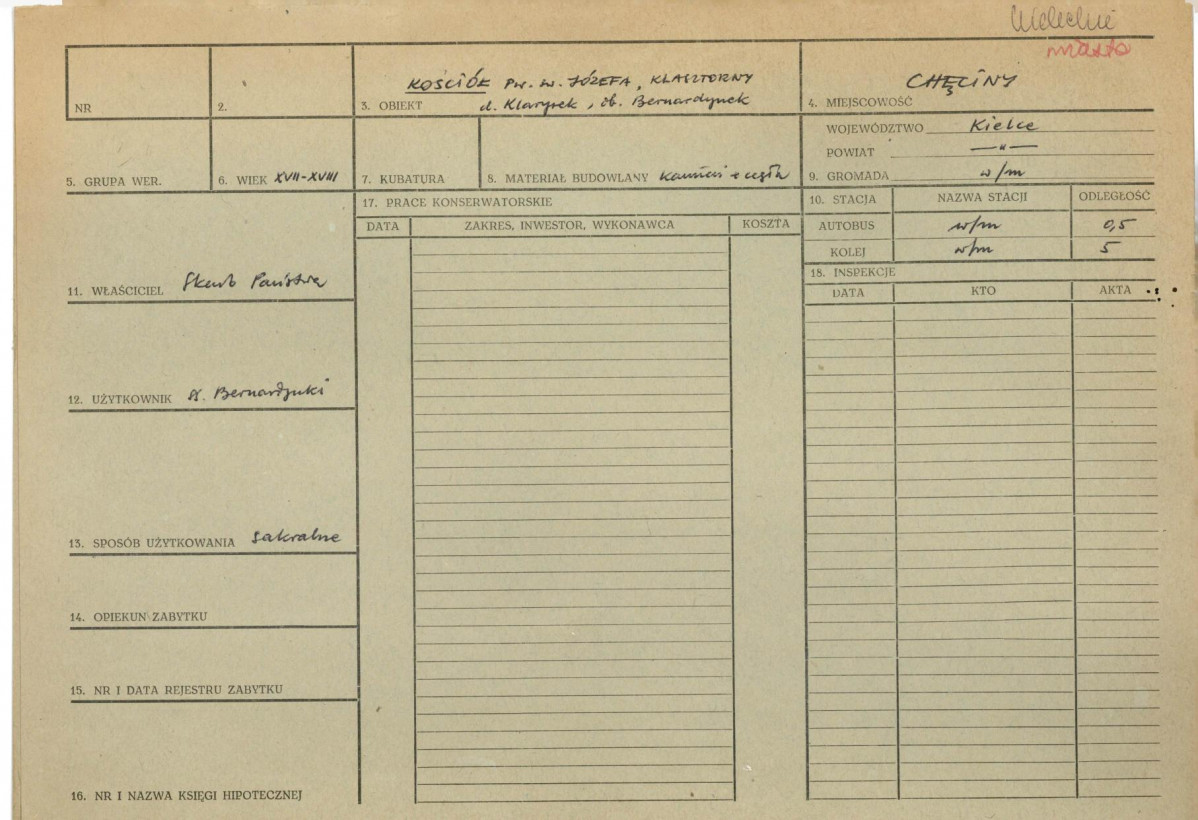 miasto
NR
2.
KOŚCIÓŁ p.w. św. JÓZEFA, KLASZTORNY
3. OBIEKT d. Klarysek, ob. Bernardynek
CHĘCINY
4. MIEJSCOWOŚĆ
5. GRUPA WER.
6. WIEK XVII-XVIII
7. KUBATURA
8. MATERIAŁ BUDOWLANY kamień i cegła
WOJEWÓDZTWO Kielce
POWIAT —"—
9. GROMADA w/m
10. STACJA NAZWA STACJI ODLEGŁOŚĆ
AUTOBUS w/m 0,5
KOLEJ w/m 5
11. WŁAŚCICIEL Skarb Państwa
12. UŻYTKOWNIK ss. Bernardynki
13. SPOSÓB UŻYTKOWANIA sakralne
14. OPIEKUN ZABYTKU
15. NR I DATA REJESTRU ZABYTKU
16. NR I NAZWA KSIĘGI HIPOTECZNEJ
17. PRACE KONSERWATORSKIE
DATA ZAKRES, INWESTOR, WYKONAWCA KOSZTA
18. INSPEKCJE
DATA KTO AKTA